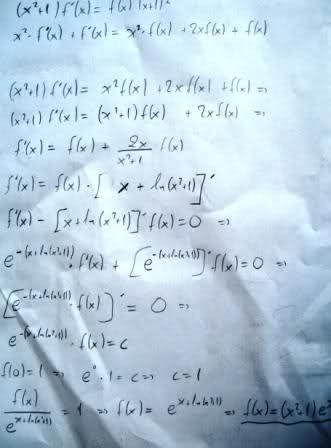 (x²+1) f'(x) = f(x) (x+1)²
x²·f'(x) + f'(x) = x²·f(x) + 2xf(x) + f(x)
(x²+1) f'(x) = x²f(x) + 2xf(x) + f(x) =>
(x²+1) f'(x) = (x²+1) f(x) + 2xf(x) =>
f'(x) = f(x) + 2x/(x²+1) f(x)
f'(x) = f(x) · [x + ln(x²+1)]'
f'(x) - [x+ln(x²+1)]' f(x) = 0 =>
e^-(x+ln(x²+1)) · f'(x) + [e^-(x+ln(x²+1))]' f(x) = 0 =>
[e^-(x+ln(x²+1)) · f(x)]' = 0 =>
e^-(x+ln(x²+1)) · f(x) = c
f(0) = 1 => e⁰·1 = c => c = 1
f(x)/e^(x+ln(x²+1)) = 1 => f(x) = e^(x+ln(x²+1)) => f(x) = (x²+1)e^x